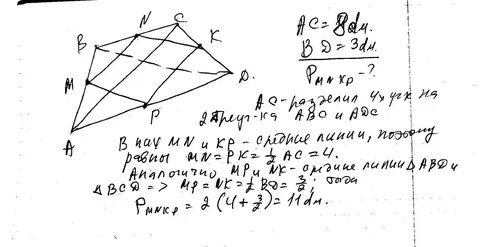 N C
AC = 8 дм.
B K
BD = 3 дм.
D.
P MNKP - ?
M
P
A
AC - разделил 4х уг-к на
2 треуг-ка ABC и ADC
В них MN и KP - средние линии, поэтому
равны MN = PK = 1/2 AC = 4.
Аналогично MP и NK - средние линии Δ ABD и
Δ BCD => MP = NK = 1/2 BD = 3/2; тогда
P MNKP = 2 (4 + 3/2) = 11 дм.